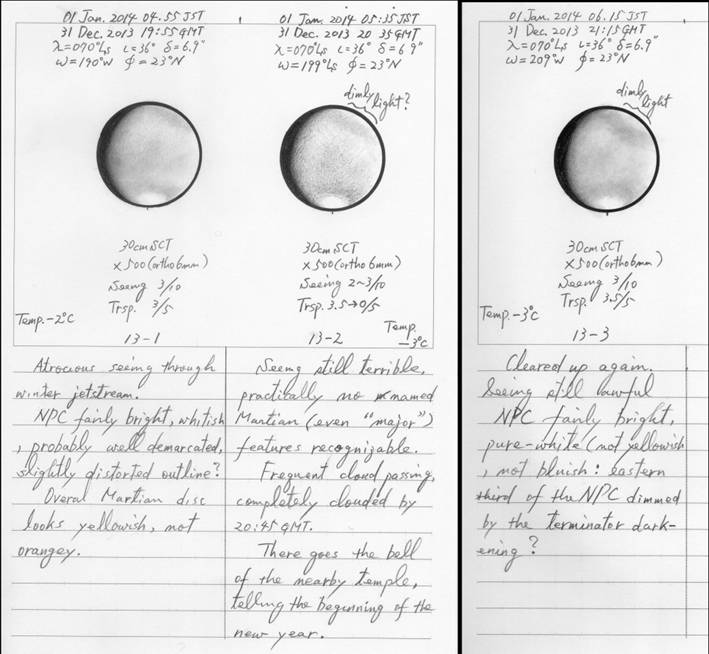 01 Jan. 2014 04.55 JST
31 Dec. 2013 19:55 GMT
λ=070°Ls ι=36° δ=6.9"
ω=190°W φ=23°N
30cm SCT
×500 (ortho 6mm)
Seeing 3/10
Trsp. 3/5
Temp. -2°C
13-1
Atrocious seeing through
winter jetstream.
NPC fairly bright, whitish
, probably well demarcated,
slightly distorted outline?
Overal Martian disc
looks yellowish, not
orangey.
01 Jan. 2014 05:35 JST
31 Dec. 2013 20 35 GMT
λ=070°Ls ι=36° δ=6.9"
ω=199°Ls φ=23°N
dimly
light?
30cm SCT
×500 (ortho 6mm)
Seeing 2~3/10
Trsp. 3.5→0/5
Temp.
-3°C
13-2
Seeing still terrible,
practically no named
Martian (even "major")
features recognizable.
Frequent cloud passing,
completely clouded by
20:45 GMT.
There goes the bell
of the nearby temple,
telling the beginning of the
new year.
01 Jan. 2014 06.15 JST
31 Dec. 2013 21:15 GMT
λ=070°Ls ι=36° δ=6.9"
ω=209°W φ=23°N
dimly
light
30cm SCT
×500 (ortho 6mm)
Seeing 3/10
Trsp. 3.5/5
Temp. -3°C
13-3
Cleared up again.
Seeing still
NPC fairly bright,
pure-white (not yellowish
, not bluish: eastern
third of the NPC dimmed
by the terminator dark-
ening?